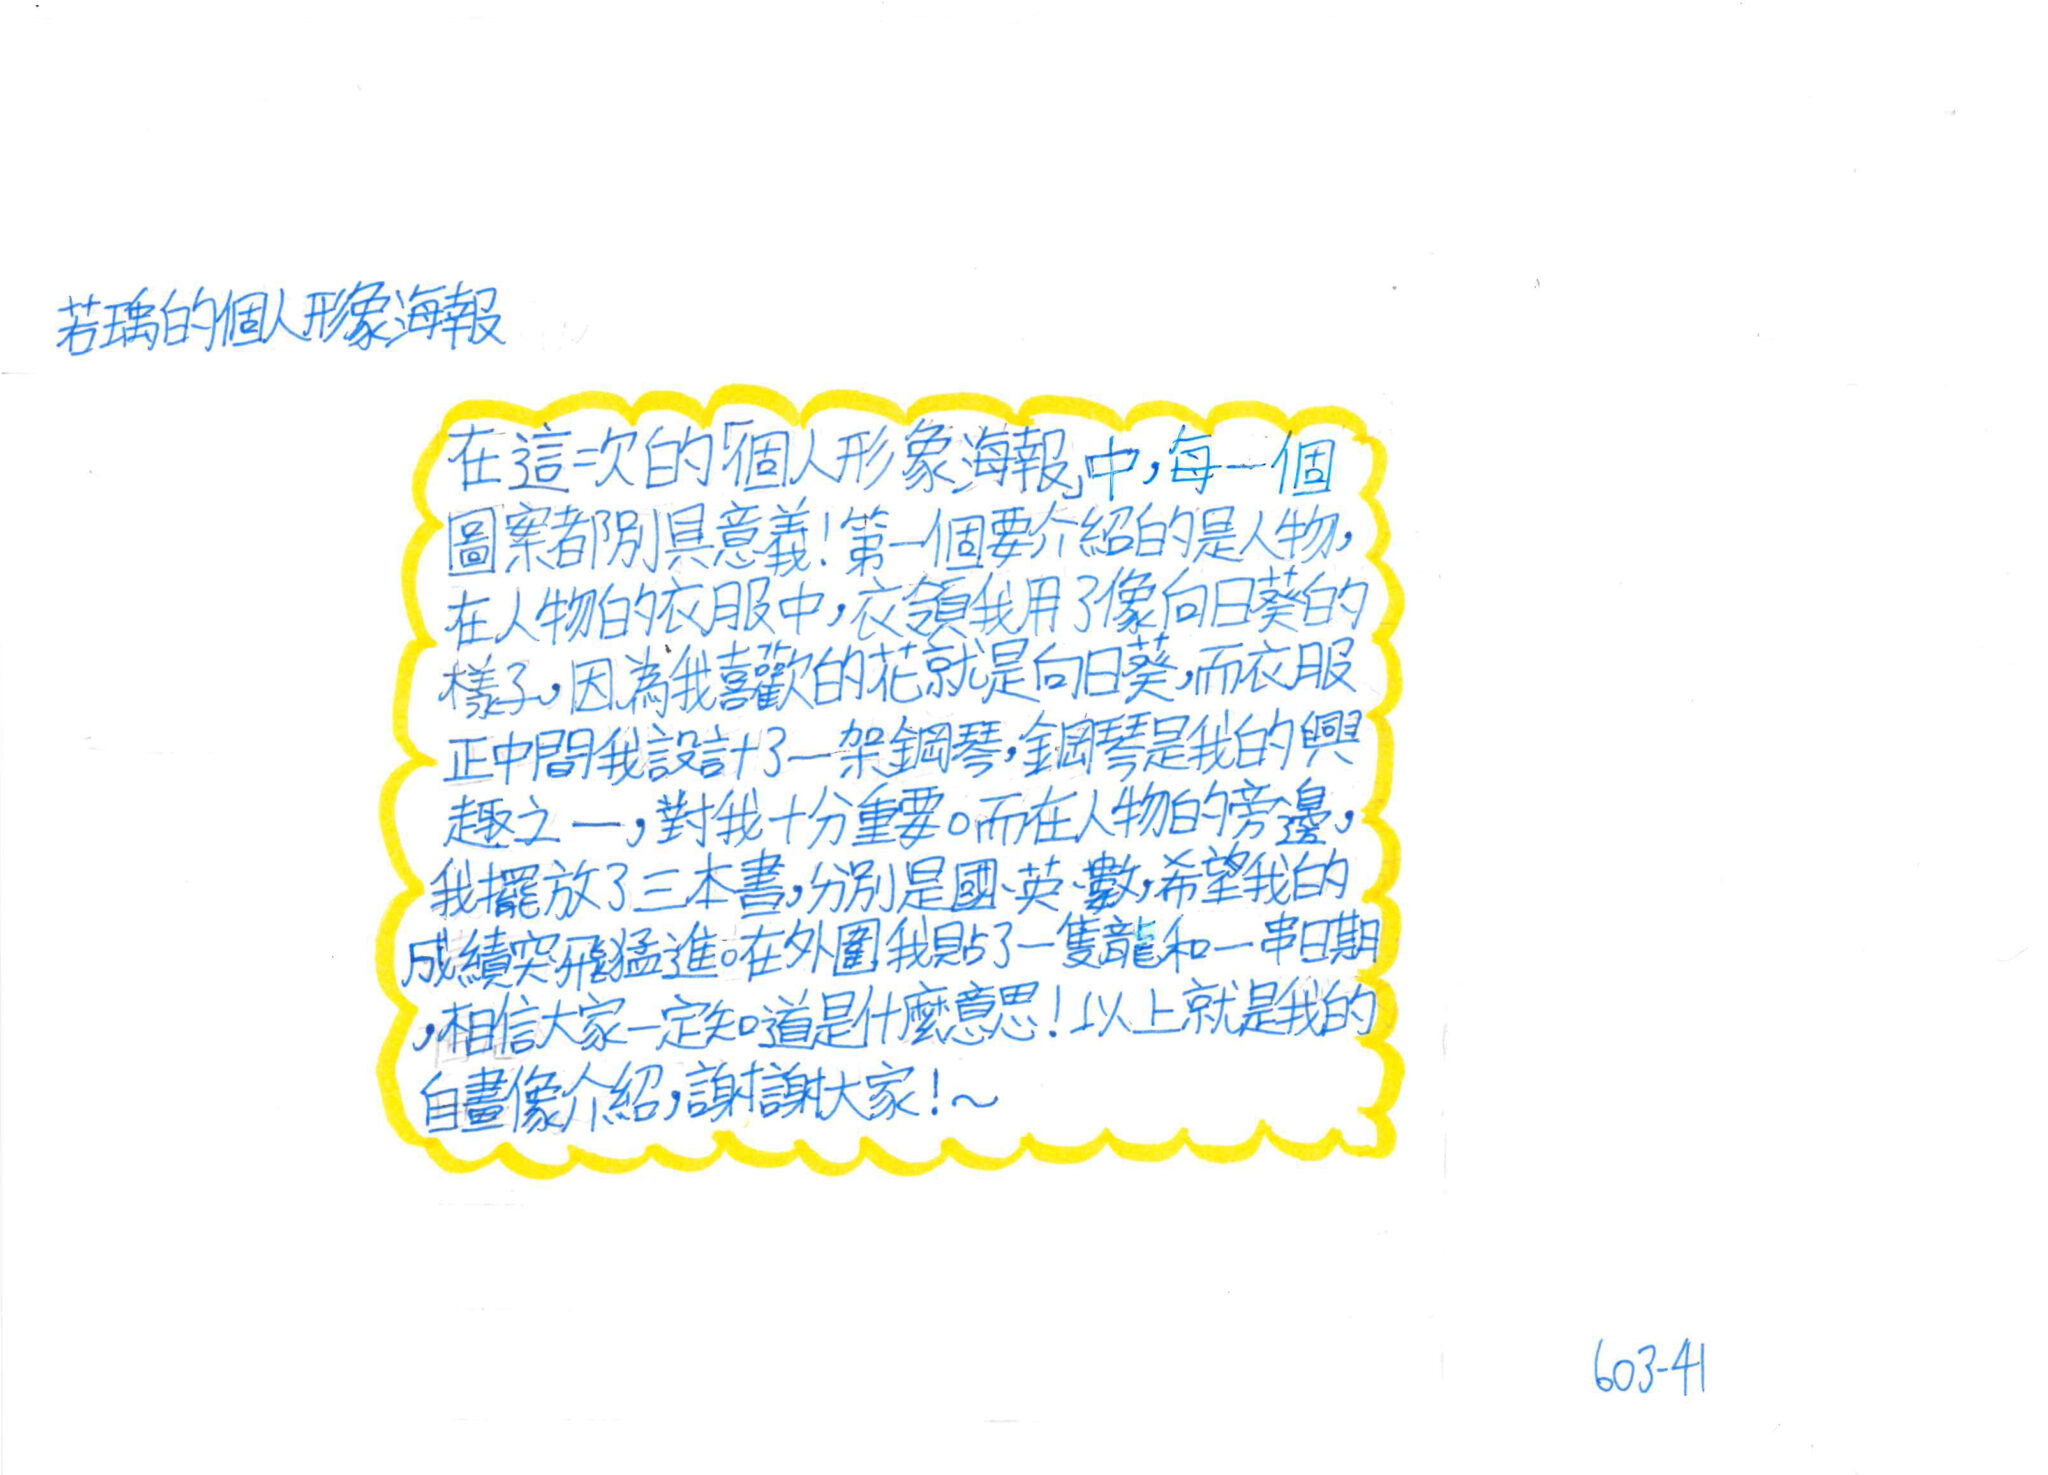 若瑀的個人形象海報
在這次的「個人形象海報」中,每一個
圖案都別具意義!第一個要介紹的是人物,
在人物的衣服中,衣領我用了像向日葵的
樣子,因為我喜歡的花就是向日葵,而衣服
正中間我設計了一架鋼琴,鋼琴是我的興
趣之一,對我十分重要。而在人物的旁邊,
我擺放了三本書,分別是國、英、數,希望我的
成績突飛猛進。在外圍我貼了一隻龍和一串日期
,相信大家一定知道是什麼意思!以上就是我的
自畫像介紹,謝謝大家!~
603-41